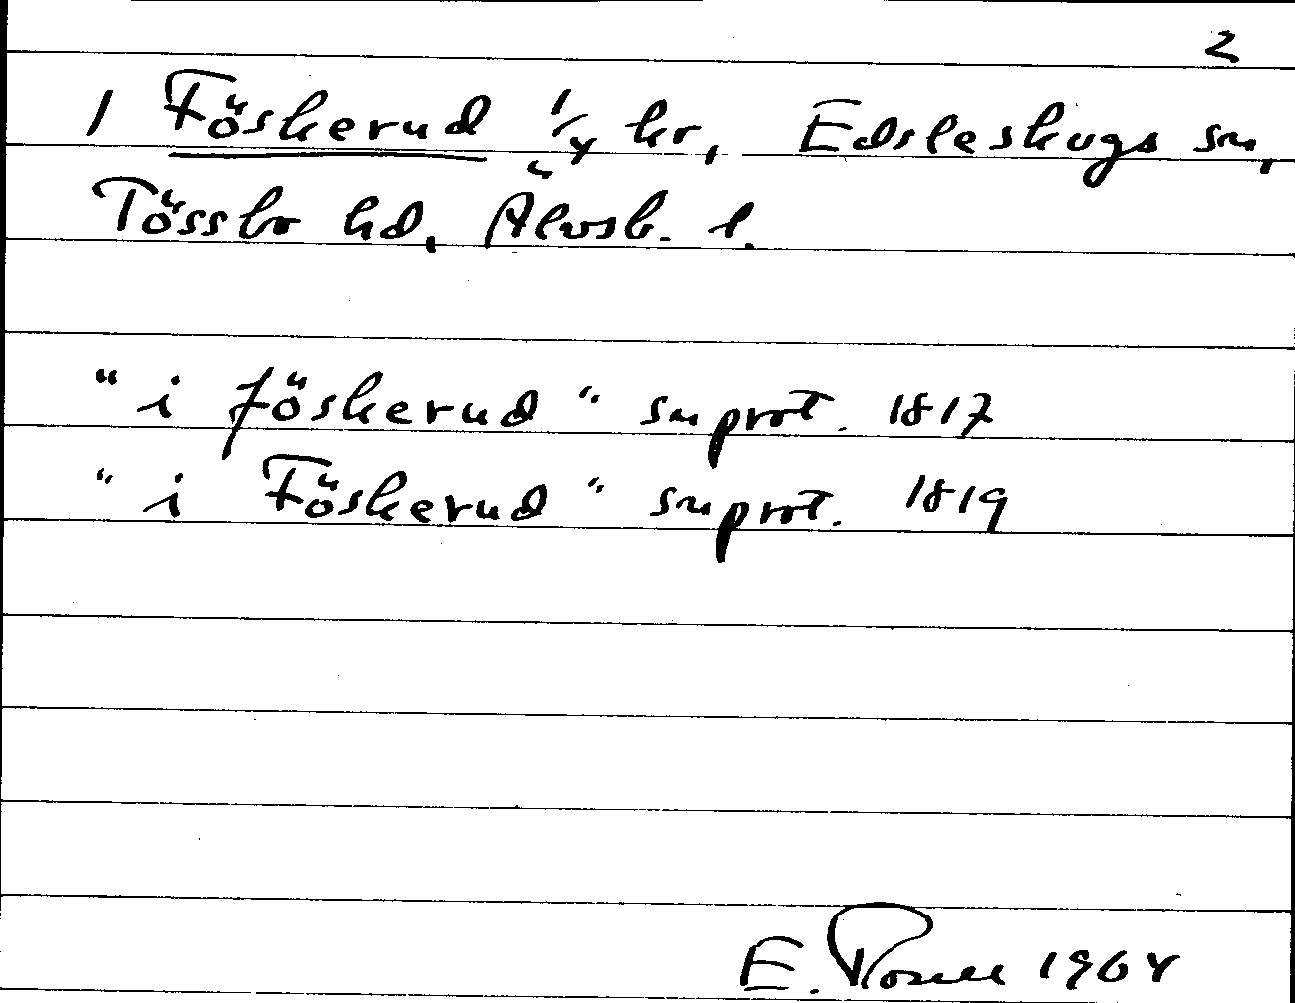 2
1 Föskerud 1/4 hr, Edsleskogs sn,
Tössbo hd, Älvsb. l.
"i föskerud" snprot. 1817
"i Föskerud" snprot. 1819
E. 1964